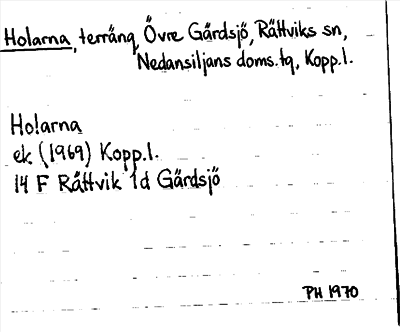 Holarna, terräng, Övre Gärdsjö, Rättviks sn,
Nedansiljans doms.tg, Kopp.l.
Holarna
ek (1969) Kopp.l.
14 F Rättvik 1d Gärdsjö
PH 1970